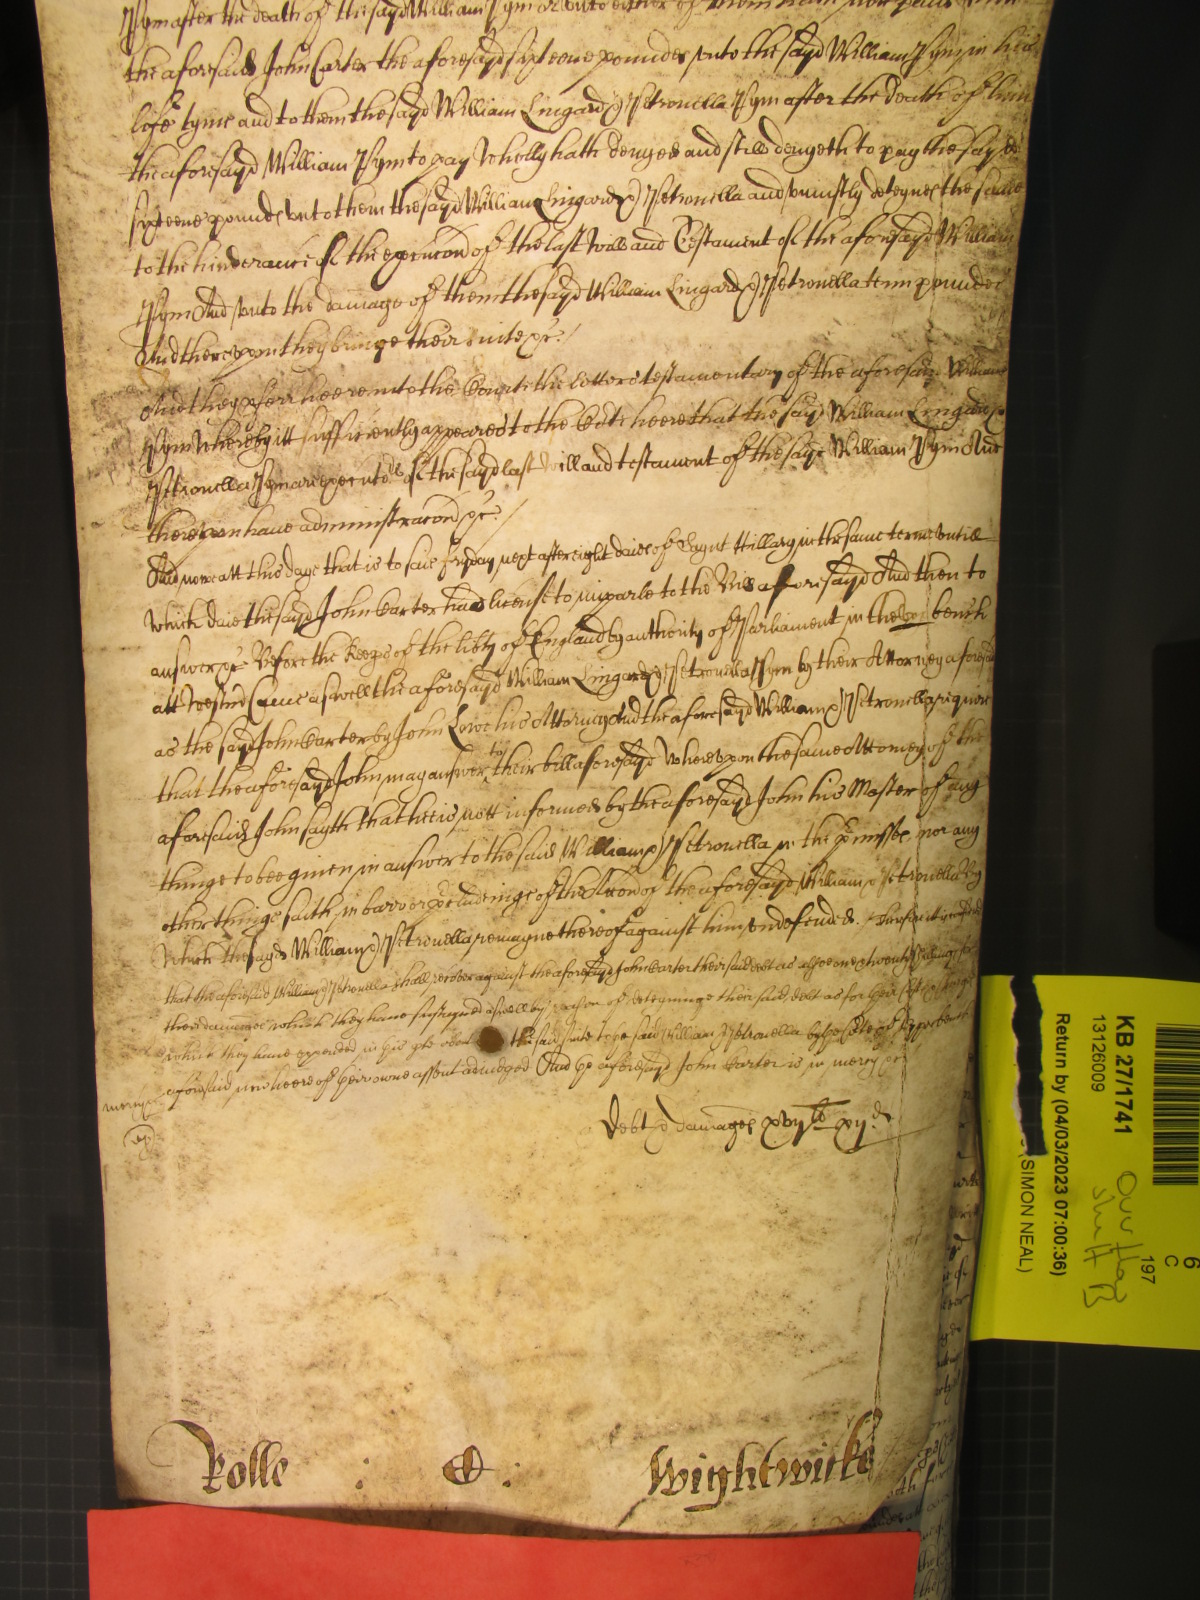 Pym after the death of the sayd William Pym or unto either of them hath not paid
the aforesaid John Carter the aforesayd sixteene poundes unto the sayd William Pym in his
life tyme and to them the sayd William Lingard & Petronella Pym after the death of him
the aforesayd William Pym to pay Wholly hath denyed and still denyeth to pay the sayd
sixteene poundes unto them the sayd William Lingard & Petronella and uniustly deteynes the same
to the hinderance of the execucon of the last Will and Testament of the aforesayd William
Pym And unto the damage of them the sayd William Lingard & Petronella tenn poundes
And thereupon they bringe their suite &c. /
And they p'ferr heere into the Courte the letters testamentary of the aforesaid William
Pym Whereby itt sufficiently appeares to the Co'te heere that the sayd William Lingard &
Petronella Pym are executors of the sayd last Will and testament of the sayd William Pym And
thereupon have administracon &c. /
And nowe att this daye that is to saie fryday next after eight daies of Saynt Hillary in the same terme untill
Which daie the sayd John Carter had license to imparle to the Bill aforesayd And then to
answer &c Before the Keep's of the lib'ty of England by authority of Parliament in the upp bench
att Westm' Came aswell the aforesayd William Lingard & Petronella Pym by their Attorney aforesaid
as the sayd John Carter by John Lowe his Attorney And the aforesayd William & Petronella require
that the aforesayd John may answer to their bill aforesayd Whereupon the same Attorney of the
aforesaid John sayth that hee is nott informed by the aforesayd John his Master of any
thinge to bee given in answer to the said William & Petronella in the p'misses nor any
other thinge saith in barr or p'cludeinge of the Accon of the aforesayd William & Petronella By
Which the sayd William & Petronella remayne thereof against him undefended. Therefore itt is considered
that the aforesaid William & Petronella shall recover against the aforesayd John Carter their said debt as alsoe one & twenty shillings for
their damages which they have susteyned aswell by reason of deteyninge their said debt as for their costs & charges
which they have expended in this p'te about the said suite to the said William & Petronella by the Co'te of the upp bench
aforesaid now heere of their owne assent adiudged And the aforesayd John Carter is in mercy &c
mercy
Debt & damages xvij li xij d
Rolle : & : Wightwicke
KB 27/1741
13126009
Return by (04/03/2023 07:00:36)
(SIMON NEAL)
6
C
197